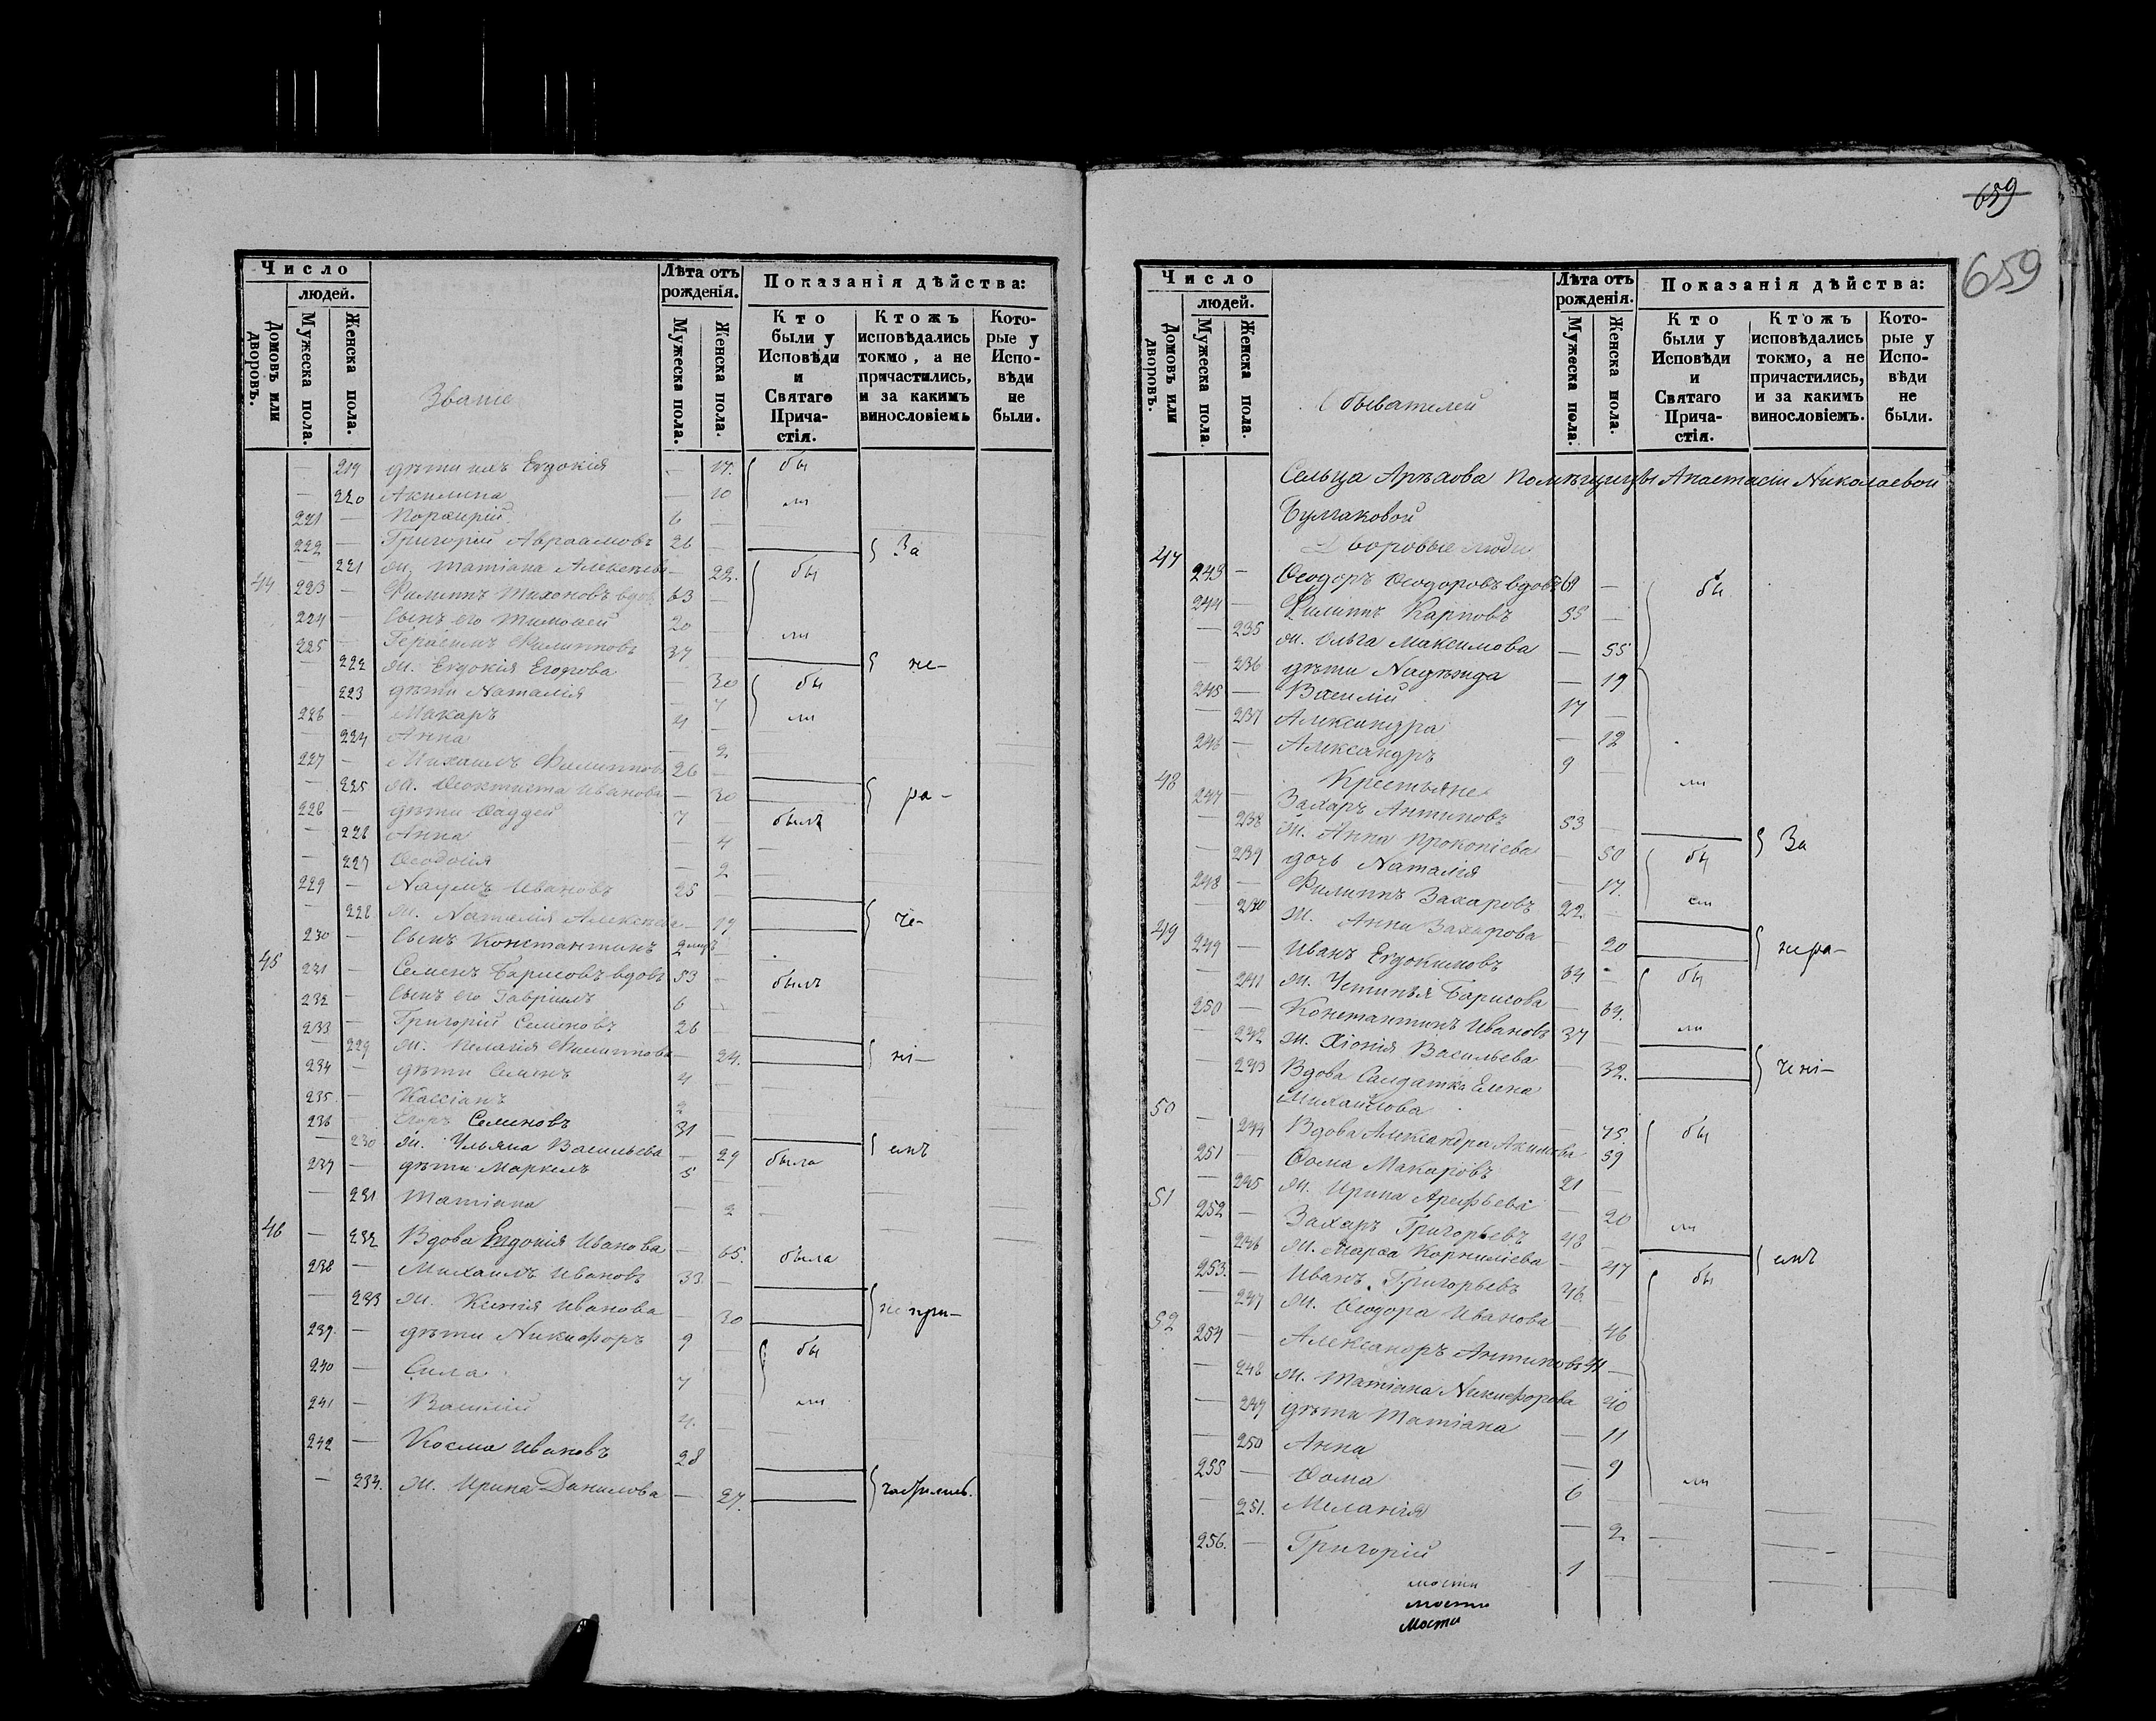 659
659
Число
людей.
Домовъ или дворовъ.
Мужеска пола.
Женска пола.
Званiе
Лѣта отъ рожденія.
Мужеска пола.
Женска пола.
Показанія дѣйства:
Кто были у Исповѣди и Святаго Прича-стія.
Ктожъ исповѣдались токмо, а не причастились, и за какимъ винословіемъ
Кото-рые у Испо-вѣди не были.
219 дѣти ихъ Евдокія — 17. бы
— 220 Акилина — 10 ли
221 — Порфирій 6 —
222 — Григорій Авраамовъ 26 — За
— 221 ж. Татіана Алексѣева — 22. бы
44 223 — Филиппъ Тихоновъ вдов. 63 —
224 — Сынъ его Тимоѳей 20 — ли
225 — Герасимъ Филипповъ 37 —
— 222 ж. Евдокія Егорова — 30 не-
— 223 дѣти Наталія — 7 бы
226 — Макаръ 4 — ли
— 224 Анна — 2
227 — Михаилъ Филипповъ 26 —
— 225 ж. Ѳеоктиста Иванова — 30 ра-
228 — дѣти Ѳаддей 7 — былъ
— 226 Анна — 4
— 227 Ѳеодосія — 2
229 — Наумъ Ивановъ 25 —
— 228 ж. Наталія Алексѣева — 19 че-
230 — Сынъ Константинъ 2
45 231 — Семенъ Барисовъ вдовъ 53 — былъ
232 — Сынъ его Гавріилъ 6 —
233 — Григорій Семеновъ 26 —
— 229 ж. Пелагія Филиппова — 24. ні-
234 — дѣти Семенъ 4 —
235. — Кассіанъ 2
236 — Егоръ Семеновъ 31 —
— 230 ж. Ульяна Васильева — 29 емъ
237 — дѣти Маркелъ 5 была
— 231 Татіана — 2
46 — 232 Вдова Евдокія Иванова — 65. была
238 — Михаилъ Ивановъ 33. —
— 233 ж. Ксенія Иванова — 30 не при-
239. — дѣти Никифоръ 9 — бы
240 — Сила 7
241 — Василій 4. — ли
242 — Косма Ивановъ 28
— 234. ж. Ирина Данилова — 27. частились.
Число
людей.
Домовъ или дворовъ.
Мужеска пола.
Женска пола.
Обывателей
Лѣта отъ рожденія.
Мужеска пола.
Женска пола.
Показанія дѣйства:
Кто были у Исповѣди и Святаго Прича-стія.
Ктожъ исповѣдались токмо, а не причастились, и за какимъ винословіемъ.
Кото-рые у Испо-вѣди не были.
Сельца Арѣхова Помѣщицы Анастасіи Николаевой
Булгаковой
Дворовые люди
47 243 — Ѳеодоръ Ѳеодоровъ вдовъ 61 — бы
244 — Филиппъ Карповъ 55 —
— 235 ж. Ольга Максимова — 55
— 236 дѣти Надѣжда — 19
245 — Василій 17 —
— 237 Александра — 12
246 — Александръ 9 —
Крестьяне ли
48 247 — Захаръ Антиповъ 53 —
— 238 ж. Анна Прокопіева — 50 За
— 239 дочь Наталія — 17. бы
248 — Филиппъ Захаровъ 22. — ли
— 240 ж. Анна Захарова — 20
49 249 — Иванъ Евдокимовъ 64 — нера-
— 241 ж. Устинія Барисова — 64. бы
250 — Константинъ Ивановъ 37 — ли
— 242 ж. Хіонія Васильева — 32.
— 243 Вдова Салдатка Елена Михайлова — 75. чені-
50 — 244 Вдова Александра Акимова — 59 бы
251 — Ѳома Макаровъ 21 —
— 245 ж. Ирина Арефьева — 20
51 252 — Захаръ Григорьевъ 48 — ли
— 246 ж. Марѳа Корниліева — 47 емъ
253. — Иванъ Григорьевъ 46. — бы
— 247 ж. Ѳеодора Иванова — 46
52 254 — Александръ Антиповъ 41 —
— 248 ж. Татіана Никифорова 40
— 249 дѣти Татіана — 11
— 250 Анна — 9
255 — Ѳома 6 ли
— 251. Меланія — 2
256. — Григорій 1 —
мости
мости
Мости